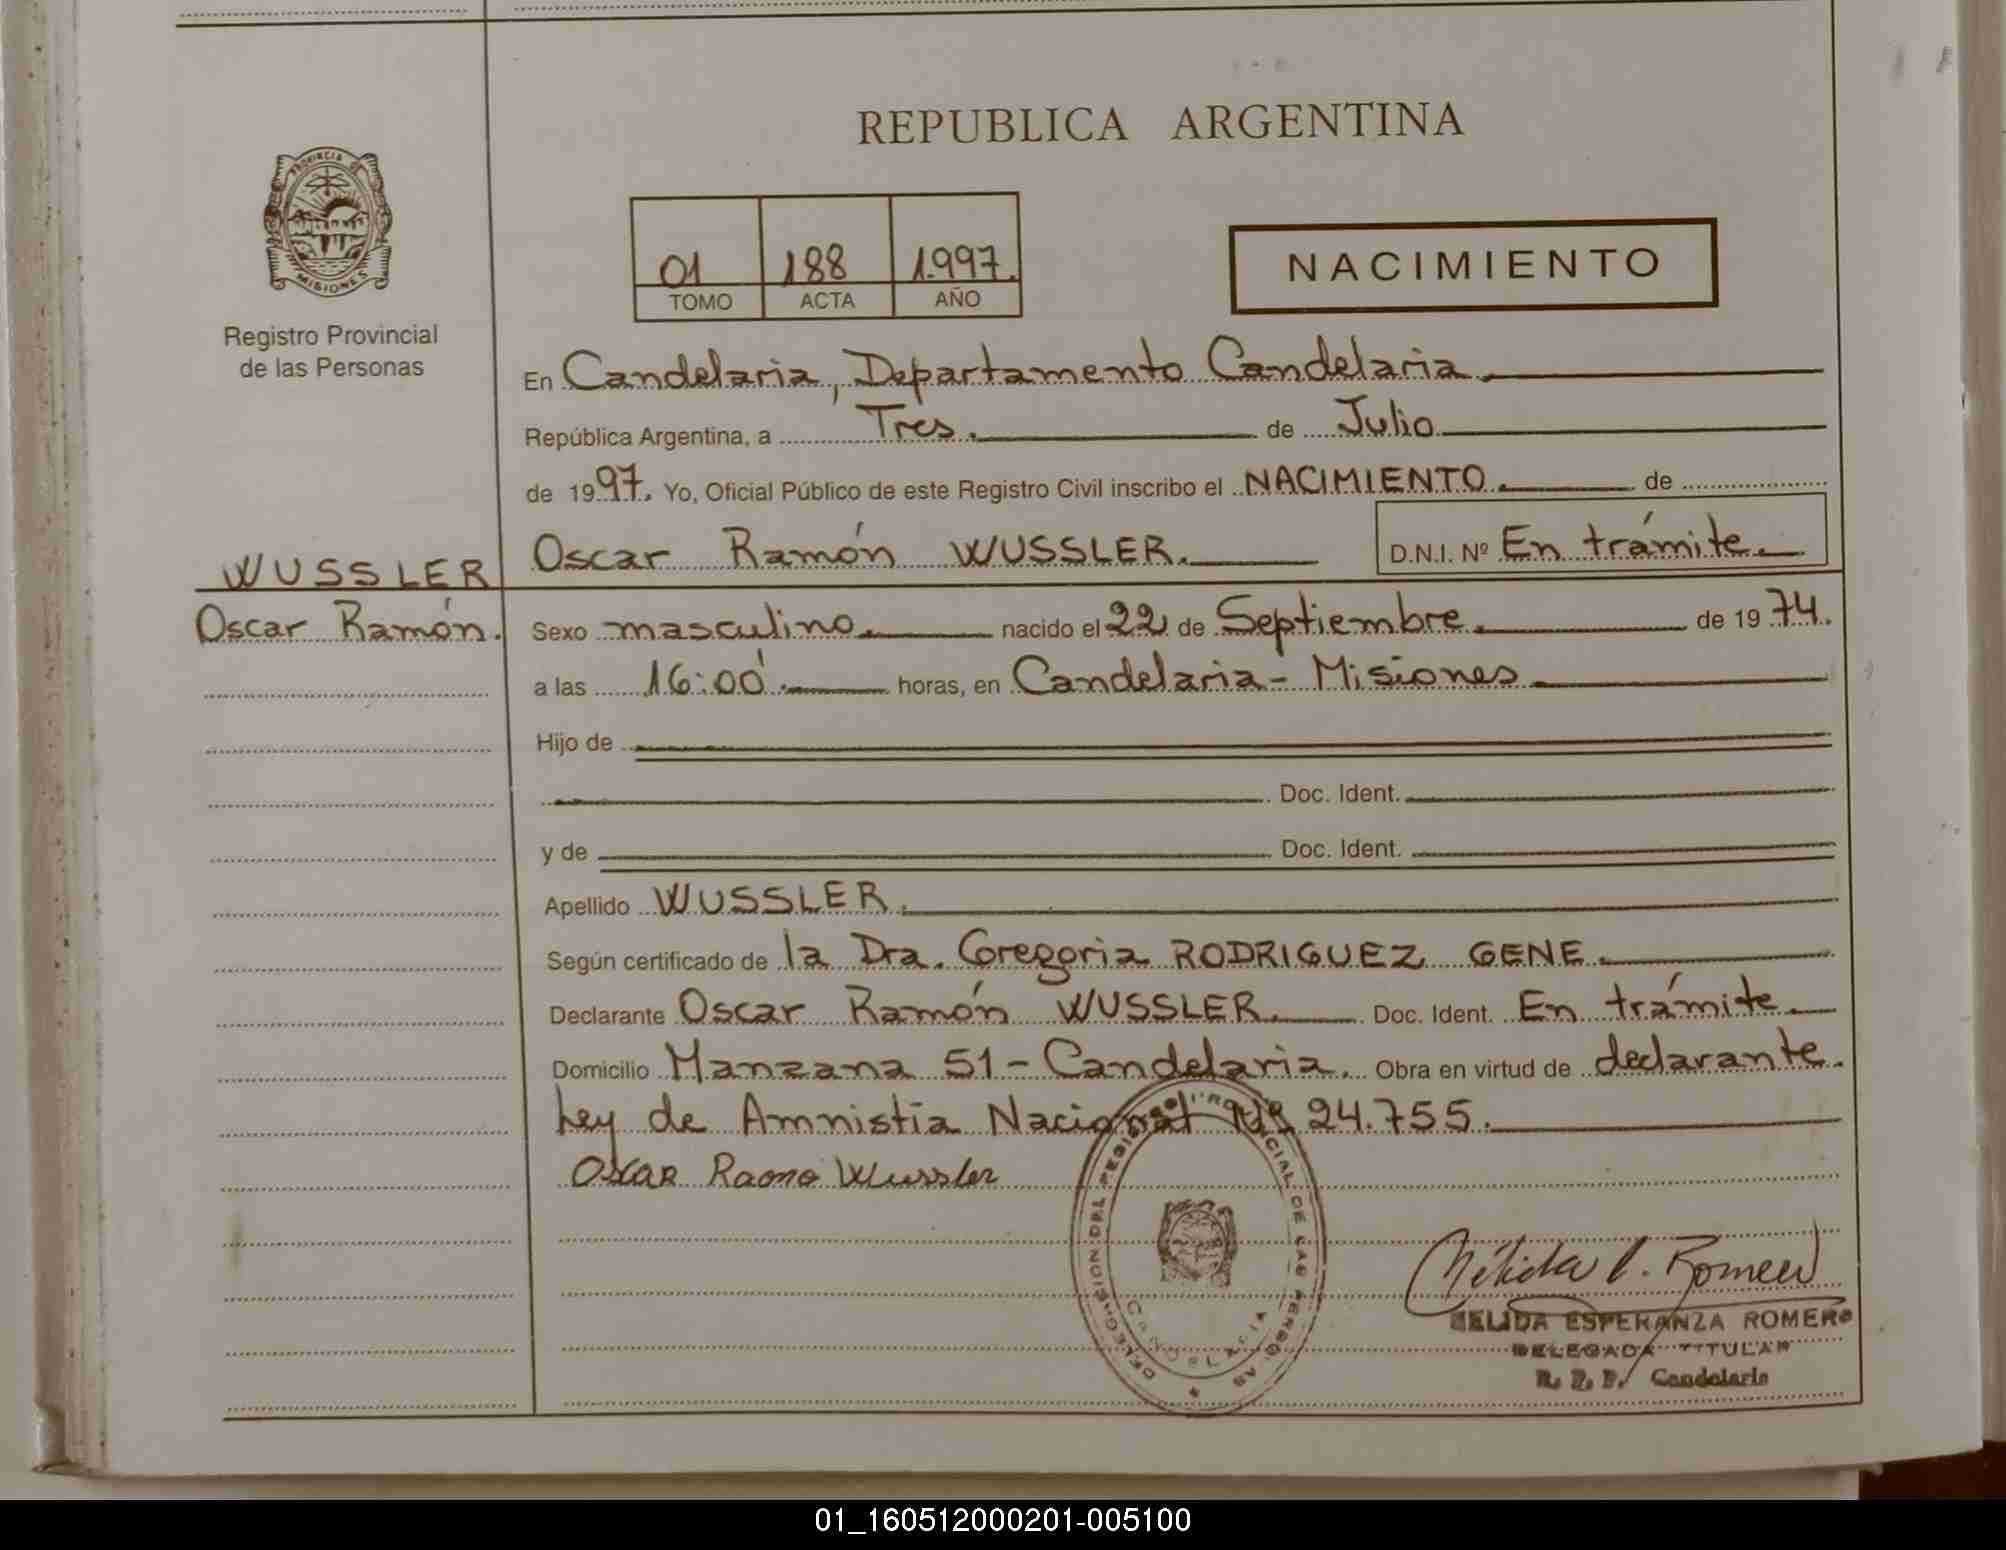 REPUBLICA ARGENTINA
PROVINCIA DE
MISIONES
Registro Provincial
de las Personas
01 188 1.997.
TOMO ACTA AÑO
NACIMIENTO
En Candelaria, Departamento Candelaria.
República Argentina, a Tres. de Julio
de 1997. Yo, Oficial Público de este Registro Civil inscribo el NACIMIENTO. de
WUSSLER
Oscar Ramón.
Oscar Ramón WUSSLER. D.N.I. Nº En trámite.
Sexo masculino. nacido el 22 de Septiembre. de 1974.
a las 16:00'. horas, en Candelaria - Misiones.
Hijo de
Doc. Ident.
y de Doc. Ident.
Apellido WUSSLER.
Según certificado de la Dra. Gregoria RODRIGUEZ GENE.
Declarante Oscar Ramón WUSSLER. Doc. Ident. En trámite.
Domicilio Manzana 51 - Candelaria. Obra en virtud de declarante.
Ley de Amnistia Nacional Nº 24.755.
Oscar Ramo Wussler
DELEGACION DEL REGISTRO PROVINCIAL DE LAS PERSONAS
CANDELARIA
Nélida E. Romero
NELIDA ESPERANZA ROMERO
DELEGADA TITULAR
R. P. P. Candelaria
01_160512000201-005100